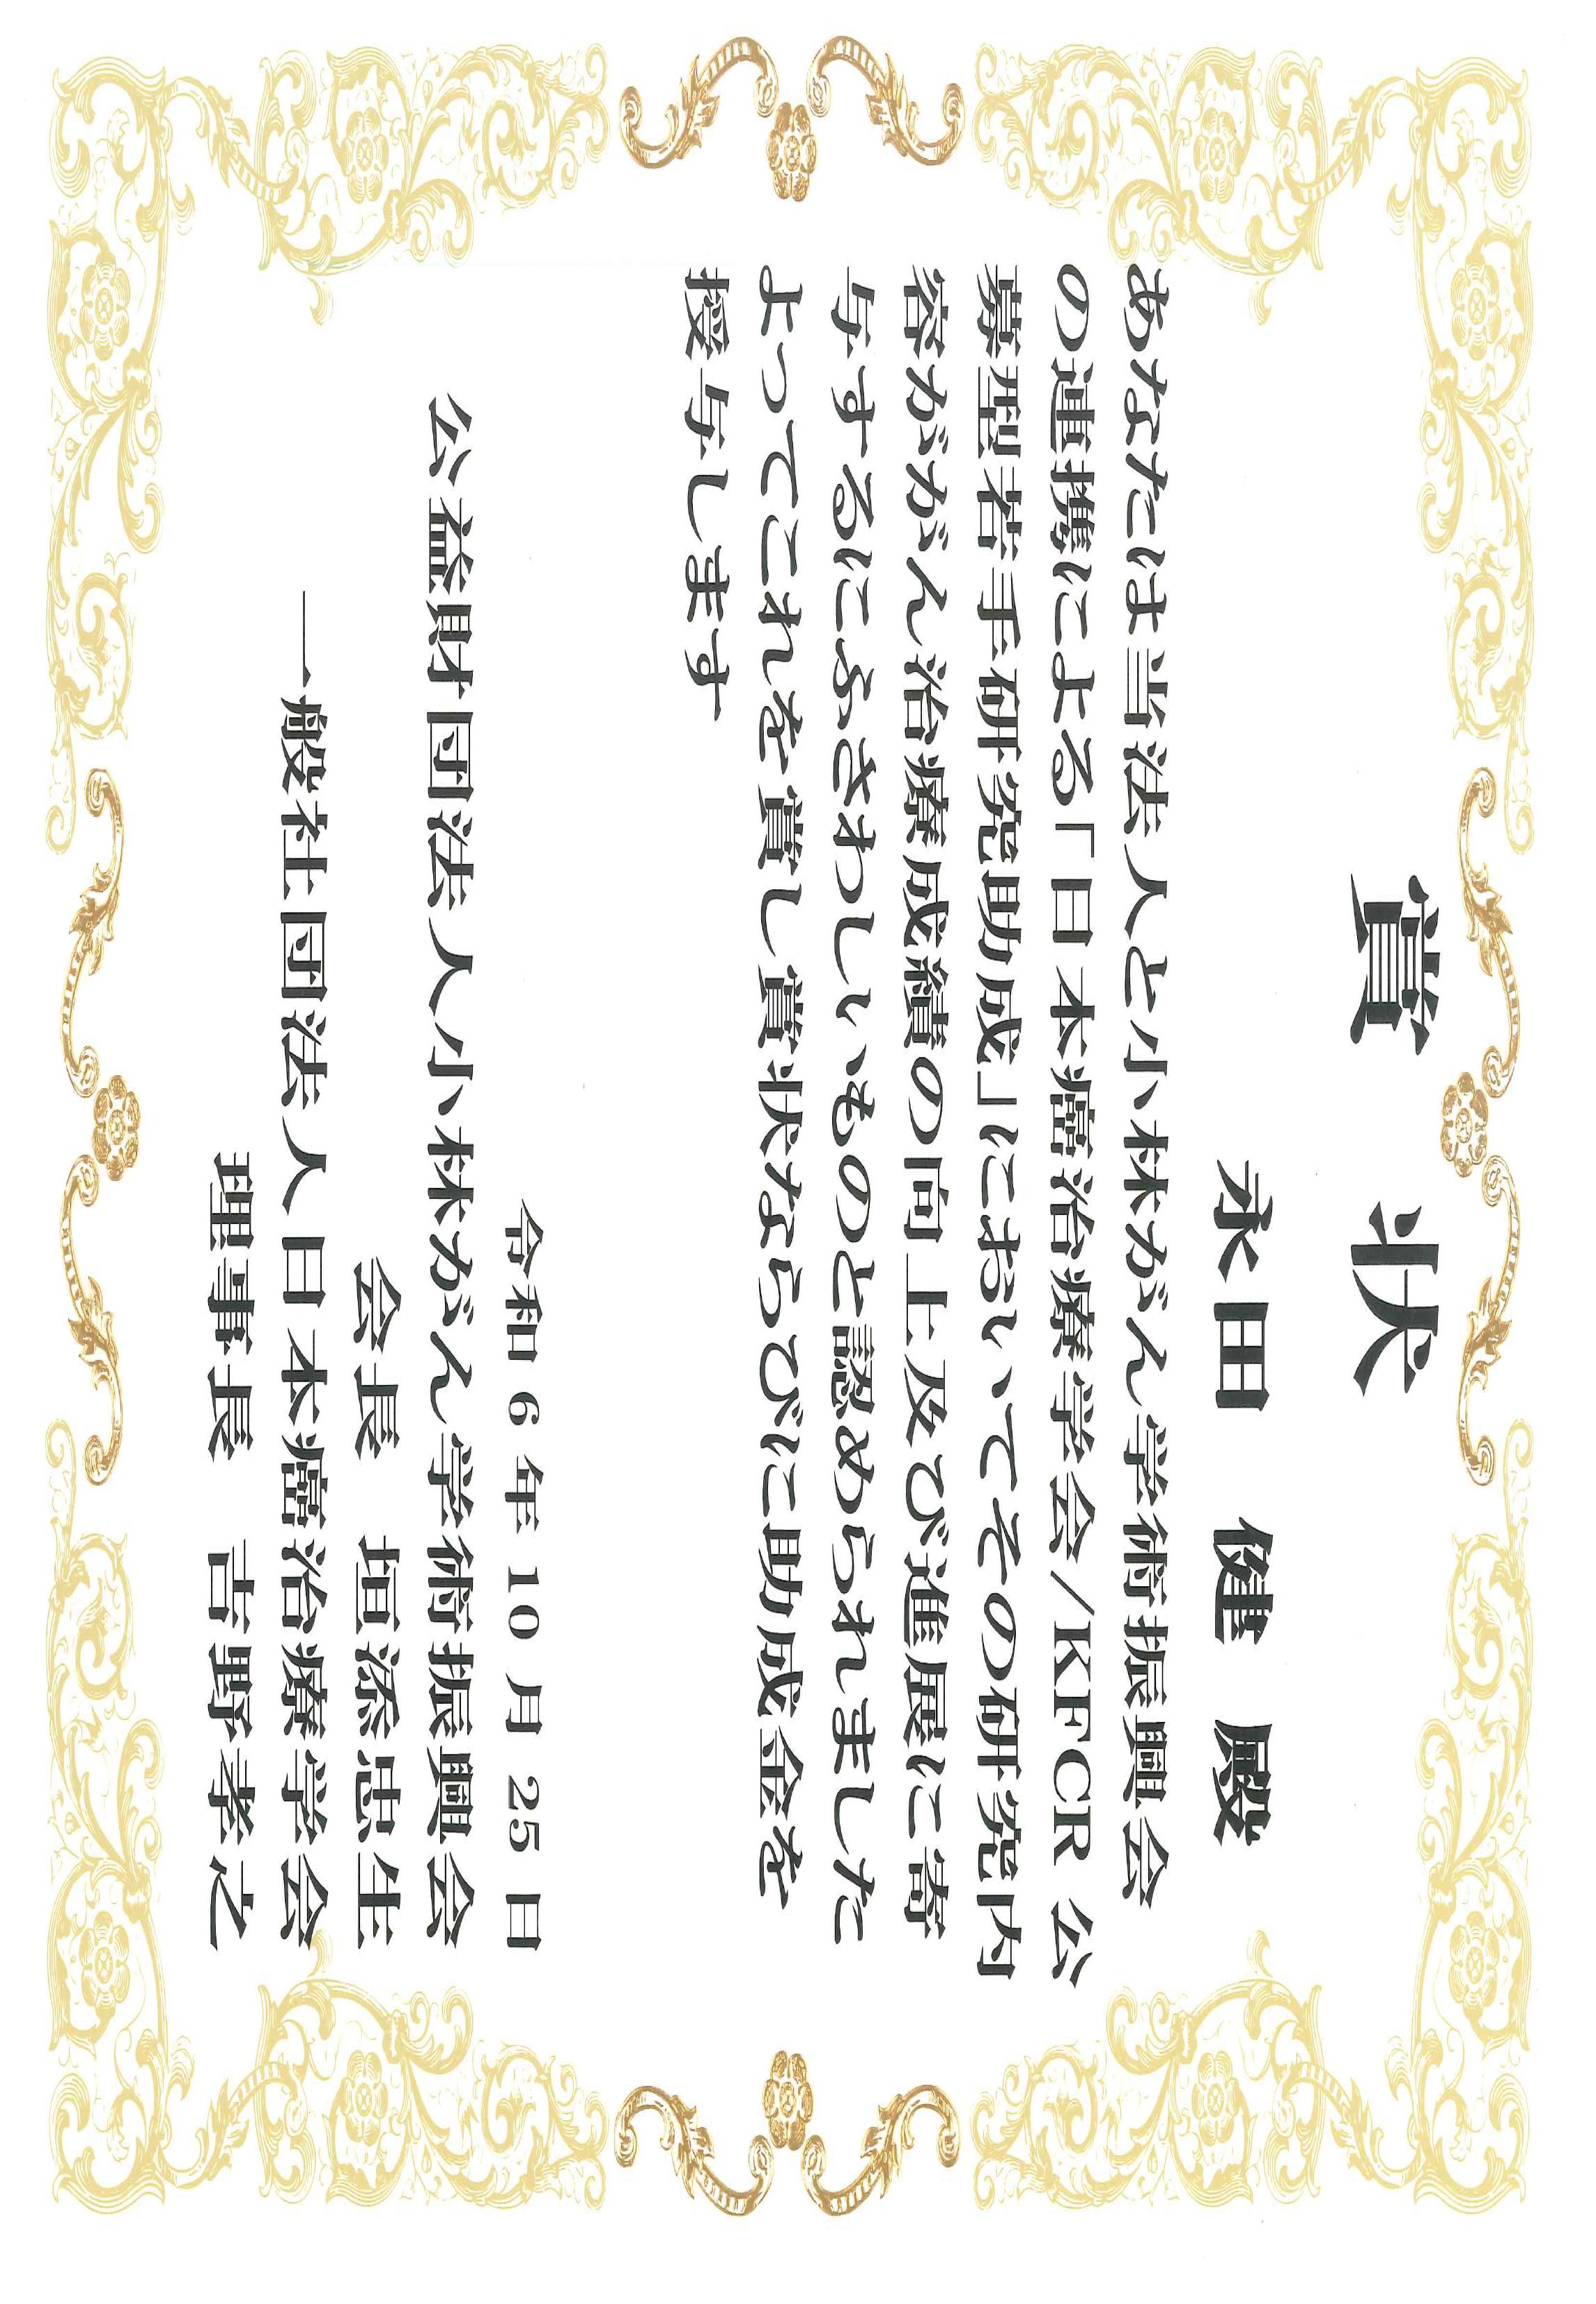 賞 状
永田 健 殿
あなたは当法人と小林がん学術振興会
の連携による「日本癌治療学会/KFCR 公
募型若手研究助成」においてその研究内
容ががん治療成績の向上及び進展に寄
与するにふさわしいものと認められました
よってこれを賞し賞状ならびに助成金を
授与します
令和 6 年 10 月 25 日
公益財団法人小林がん学術振興会
会長 垣添忠生
一般社団法人日本癌治療学会
理事長 吉野孝之